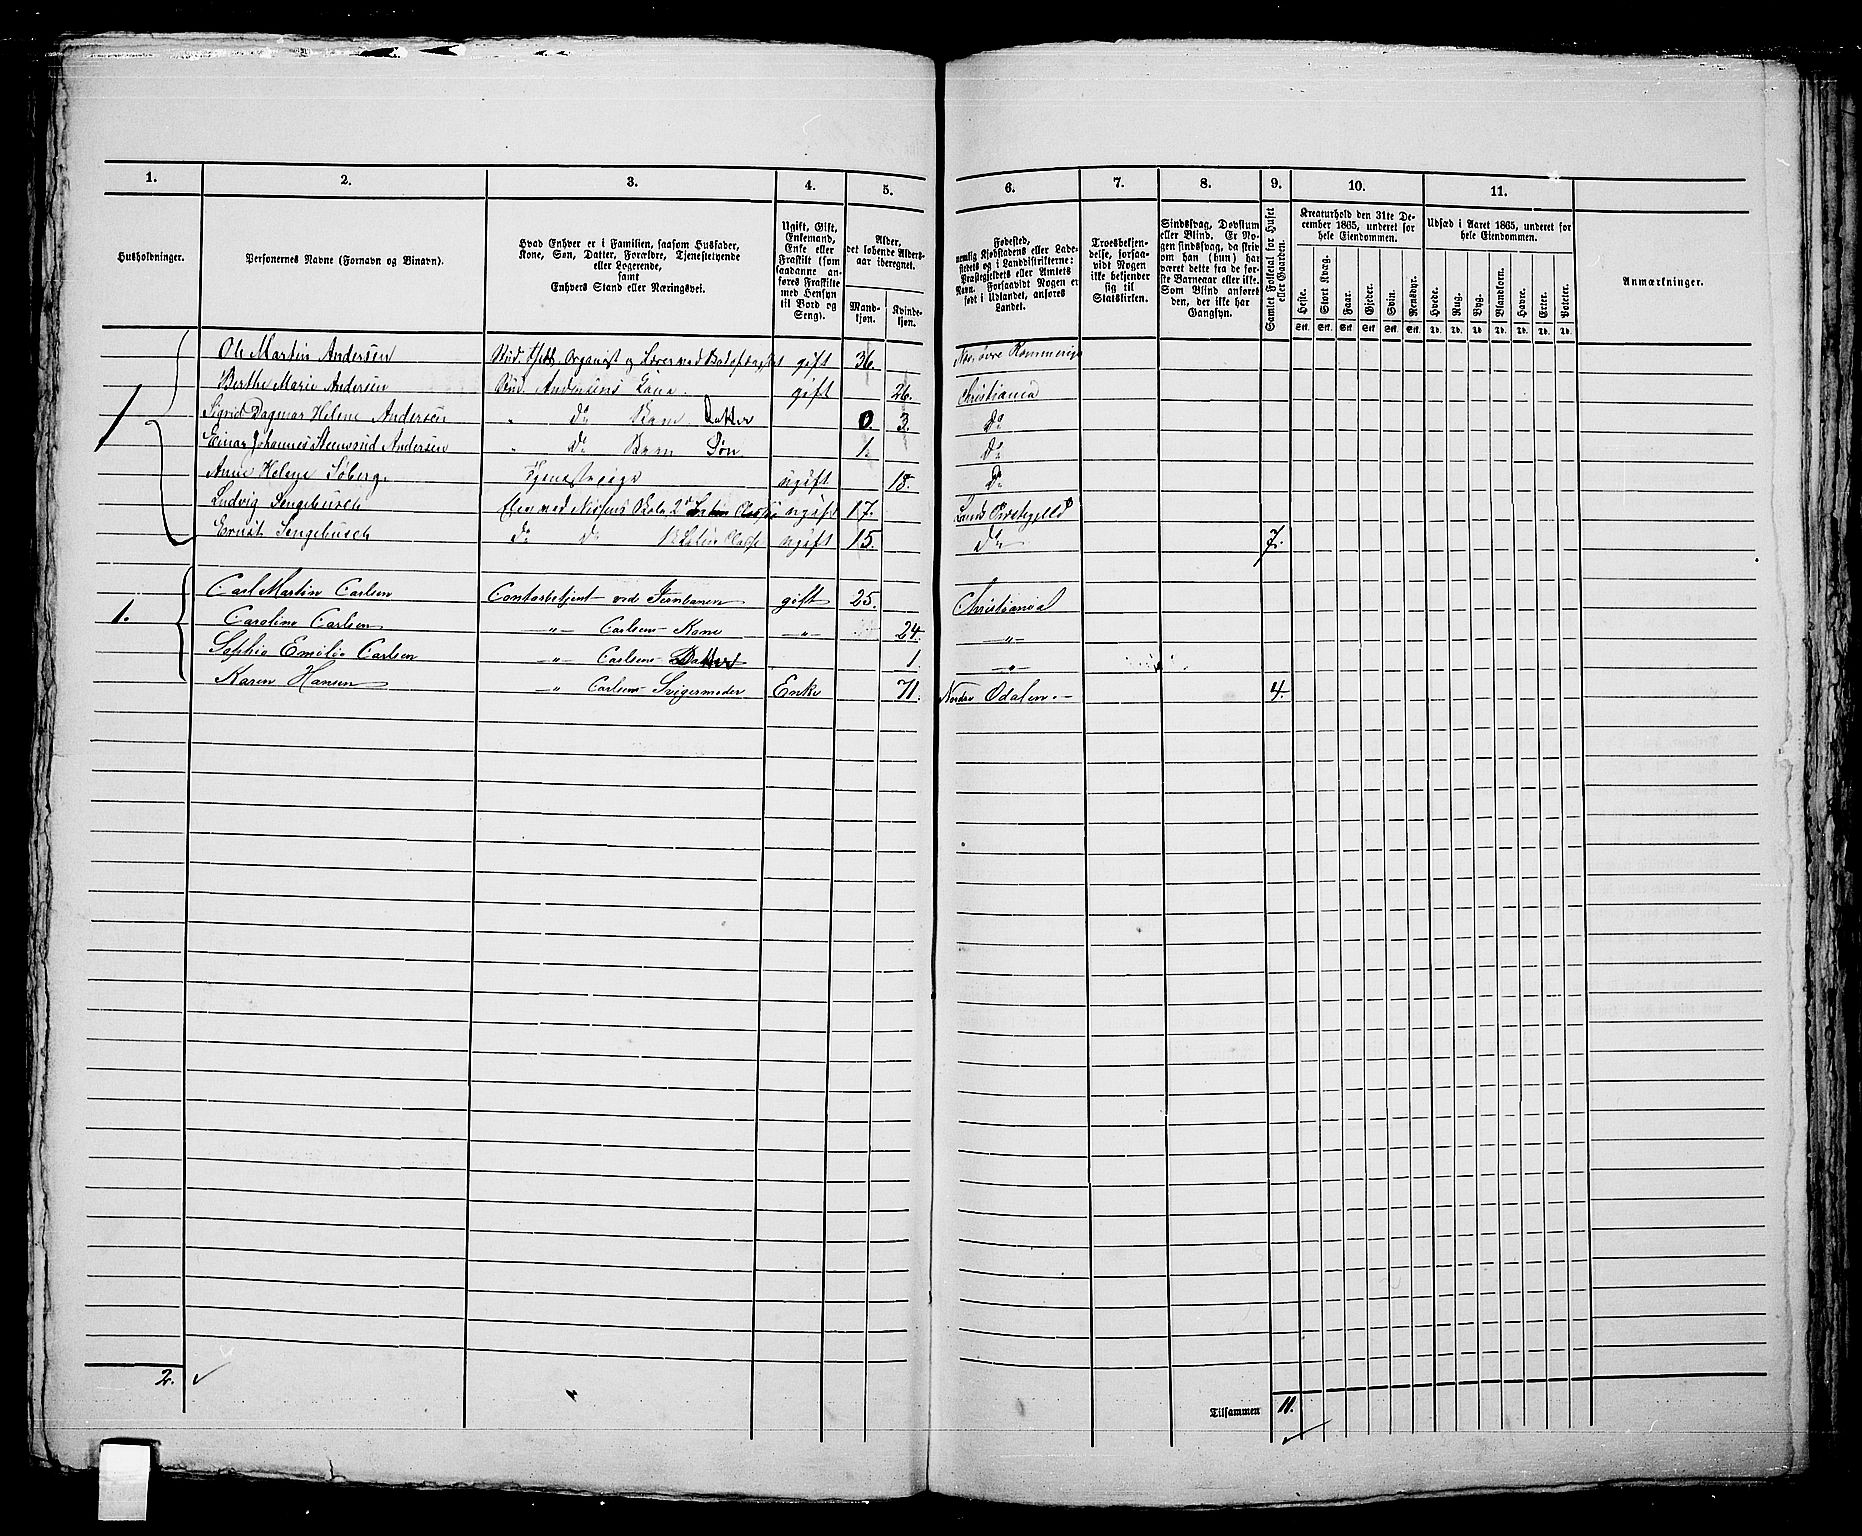 1. 2. 3. 4. 5. 6. 7. 8. 9. 10. 11.
Husholdninger.
Personernes Navne (Fornavn og Binavn).
Hvad Enhver er i Familien, saasom Husfader,
Kone, Søn, Datter, Forældre, Tjenestetyende
eller Logerende,
samt
Enhvers Stand eller Næringsvei.
Ugift, Gift,
Enkemand,
Enke eller
Fraskilt (som
saadanne an-
føres Fraskilte
med Hensyn
til Bord og
Seng).
Alder,
det løbende Alders-
aar iberegnet.
Mand-
kjøn.
Kvinde-
kjøn.
Fødested,
nemlig Kjøbstadens eller Lade-
stedets og i Landdistrikterne:
Præstegjeldets eller Amtets
Navn. Forsaavidt Nogen er
født i Udlandet, anføres
Landet.
Troesbekjen-
delse, forsaa-
vidt Nogen
ikke bekjender
sig til
Statskirken.
Sindssvag, Døvstum
eller Blind. Er No-
gen sindssvag, da skriv
om han (hun) har
været dette fra de før-
ste Barneaar eller ikke.
Som Blind anføres
den, der ikke har
Gangsyn.
Samlet Folketal for Huset
eller Gaarden.
Kreaturhold den 31te De-
cember 1865, underet for
hele Eiendommen.
Heste. Stort Kvæg. Faar. Gjeder. Svin. Rensdyr.
Stk. Stk. Stk. Stk. Stk. Stk.
Udsæd i Aaret 1865, underet for
hele Eiendommen.
Hvede. Rug. Byg. Blandkorn. Havre. Erter. Poteter.
Td. Td. Td. Td. Td. Td. Td.
Anmærkninger.
Ole Martin Andersen Organist og Lærer ved gift 36. øvre Rommerige
Berthe Marie Andersen Stud. Andersens Kone. gift 26. Christiania
1 Sigrid Dagmar Helene Andersen " do Barn Datter 0. 3. do
Einar Johannes Andersen " do Barn Søn 1. do
Anne Helene Søberg Tjenestepige ugift 18. do
Ludvig Sengebusch Elev ved Nissens Skole 2den Latin Classe ugift 17. Præstegjeld
Ernst Sengebusch do do Latin Classe ugift 15. do 7.
Carl Martin Carlsen Contorbetjent ved Jernbanen gift 25. Christiania
1. Caroline Carlsen —"— Carlsens Kone —"— 24. —"—
Sophie Emilie Carlsen —"— Carlsens Datter 1. —"—
Karen Hansen —"— Carlsens Svigermoder Enke 71. Nordre Odalen.— 4.
2. ✓
Tilsammen 11.
✓